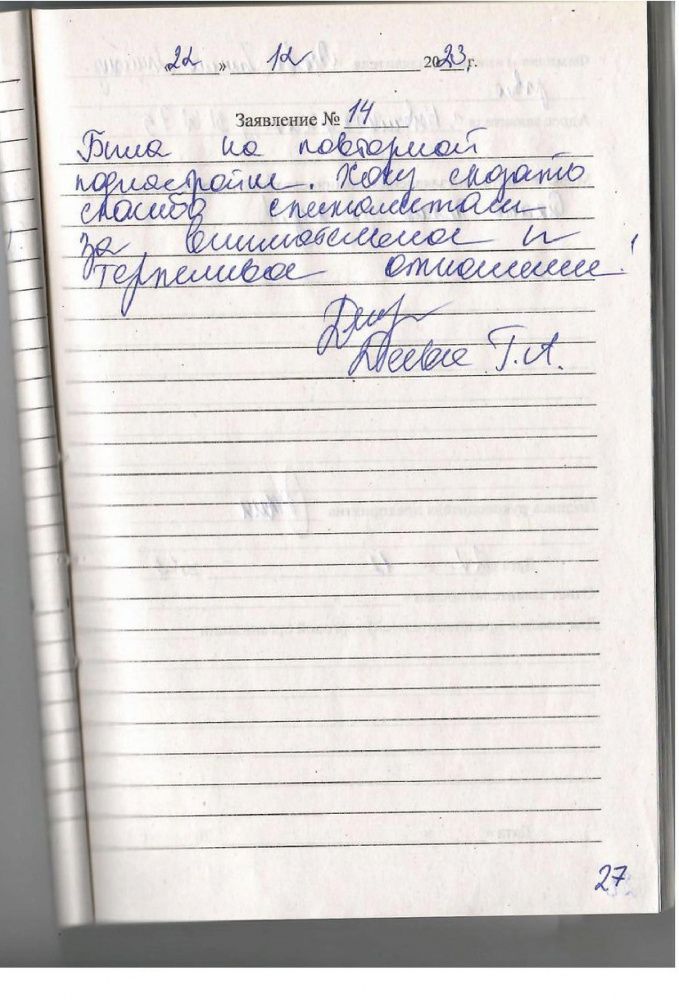 «22» 12 2023 г.
Заявление № 14
Была на повторной
поднастройке. Хочу сказать
спасибо специалистам
за внимательное и
терпеливое отношение!
Т.А.
27